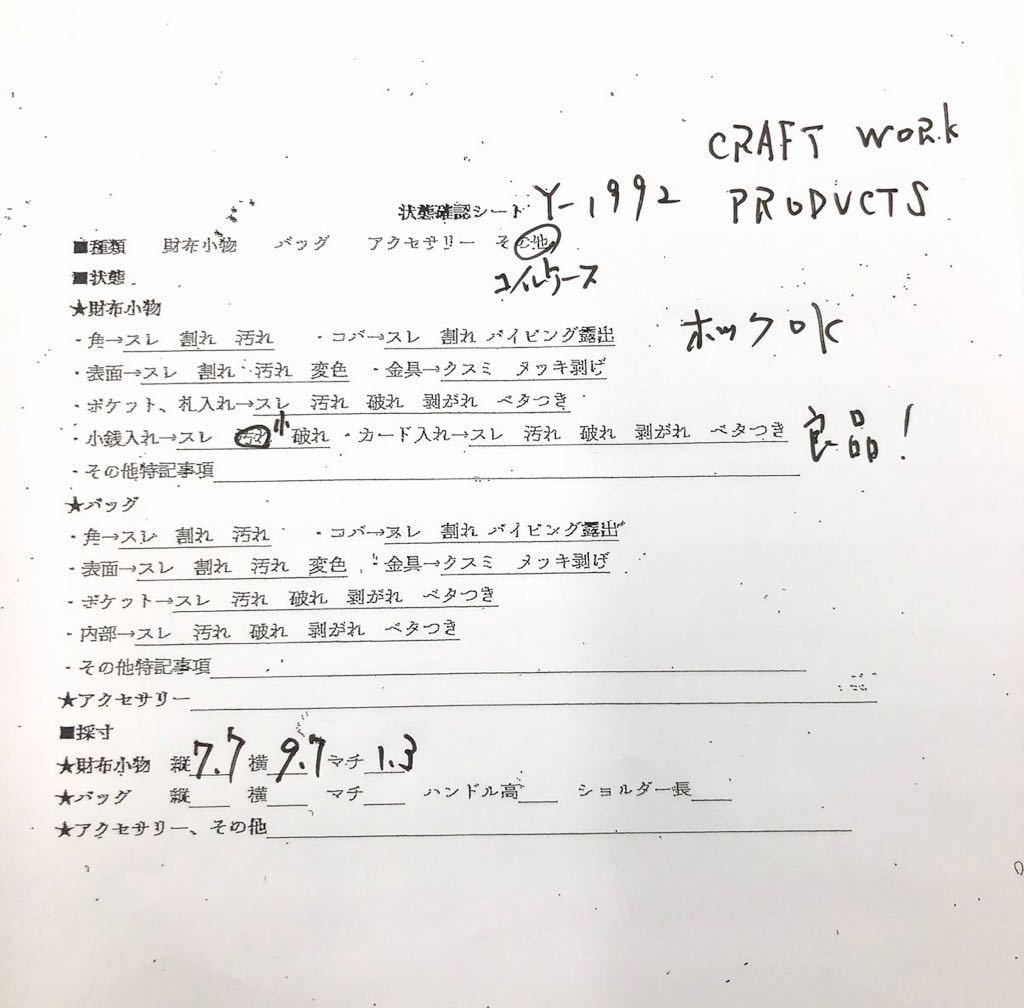 CRAFT WORK
PRODUCTS
状態確認シート Y-1992
■種類 財布小物 バッグ アクセサリー その他
コインケース
■状態
★財布小物
ホックOK
・角→スレ 割れ 汚れ ・コバ→スレ 割れ パイピング露出
・表面→スレ 割れ 汚れ 変色 ・金具→クスミ メッキ剥げ
・ポケット、札入れ→スレ 汚れ 破れ 剥がれ ベタつき
・小銭入れ→スレ 汚れ 小 破れ ・カード入れ→スレ 汚れ 破れ 剥がれ ベタつき
良品!
・その他特記事項
★バッグ
・角→スレ 割れ 汚れ ・コバ→スレ 割れ パイピング露出
・表面→スレ 割れ 汚れ 変色 ・金具→クスミ メッキ剥げ
・ポケット→スレ 汚れ 破れ 剥がれ ベタつき
・内部→スレ 汚れ 破れ 剥がれ ベタつき
・その他特記事項
★アクセサリー
■採寸
★財布小物 縦7.7 横9.7 マチ1.3
★バッグ 縦 横 マチ ハンドル高 ショルダー長
★アクセサリー、その他